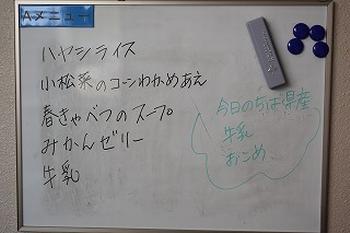 Aメニュー
ハヤシライス
小松菜のコーンわかめあえ
春きゃべつのスープ
みかんゼリー
牛乳
今日のちば県産
牛乳
おこめ